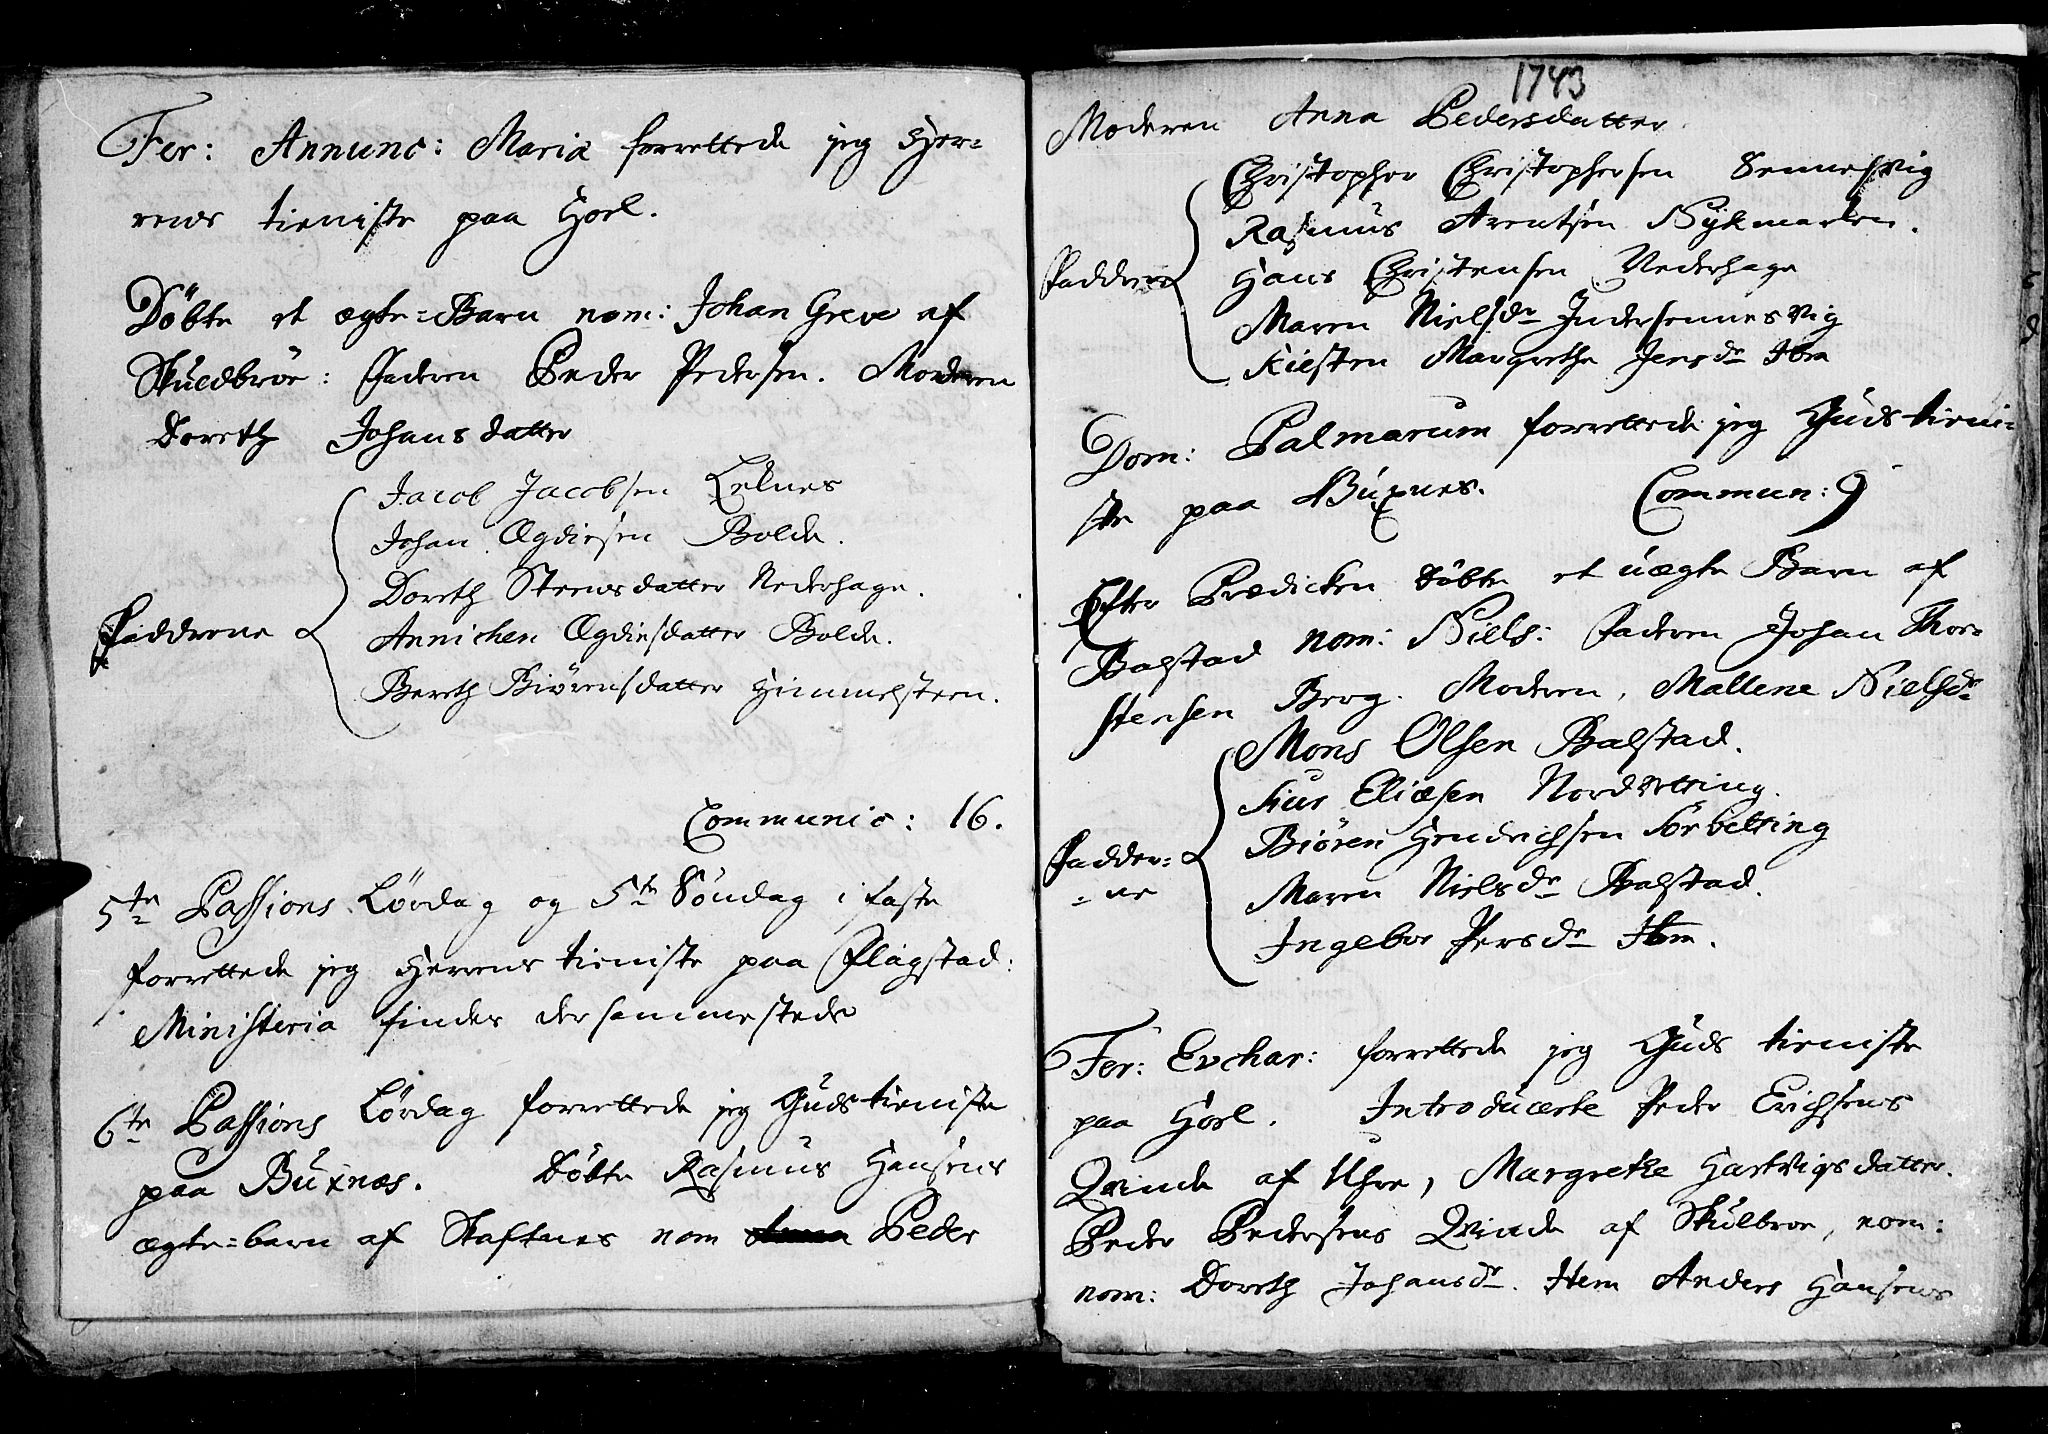 Fer: Annunc: Mariæ forrettede jeg Her=
rens tieniste paa Hoel.
Döbte et ægte=Barn nom: Johan Greve af
Skuldbroe: Faderen Peder Pedersen. Moderen
Doreth Johansdatter
Jacob Jacobsen Leknes
Johan Ægdiesen Bolde.
Doreth Steensdatter Nederhage.
Fadderne Annichen Ægdiesdatter Bolde.
Bereth Biörensdatter Himmelsteen.
Communic: 16.
5te Passions Lördag og 5te Söndag i faste
forrettede jeg Herrens tieniste paa Flagstad:
Ministeria findes dersammestede
6te Passions Lördag forrettede jeg Guds tieniste
paa Buxnæs. Döbte Rasmus Hansens
ægte=barn af Skaftnes nom Peder
1743
Moderen Anna Pedersdatter.
Christopher Christophersen Sennesvig
Rasmus Arentsen Nykmarken.
Fadderne Hans Christensen Nederhage
Maren Nielsdr Indersennesvig
Kiersten Margrethe Jensdr Ibm
Dom: Palmarum forrettede jeg Guds tieni=
ste paa Buxnes. Commun: 9
Efter Prædicken döbte et uægte Barn af
Balstad nom: Niels: Faderen Johan Thor=
stensen Borg. Moderen, Mallene Nielsdr
Mons Olsen Balstad.
Siur Eliæsen Nordbetting.
Fadder= Biören Hendrichsen Sörbetting
=ne Maren Nielsdr Balstad.
Ingebor Persdr Ibm.
Fer: Evchar: forrettede jeg Guds tieniste
paa Hoel. Introducerte Peder Erichsens
Qvinde af Uhre, Margrethe Hartvigsdatter.
Peder Pedersens Qvinde af Skulbroe, nom:
nom: Doreth Johansdr. Item Anders Hansens